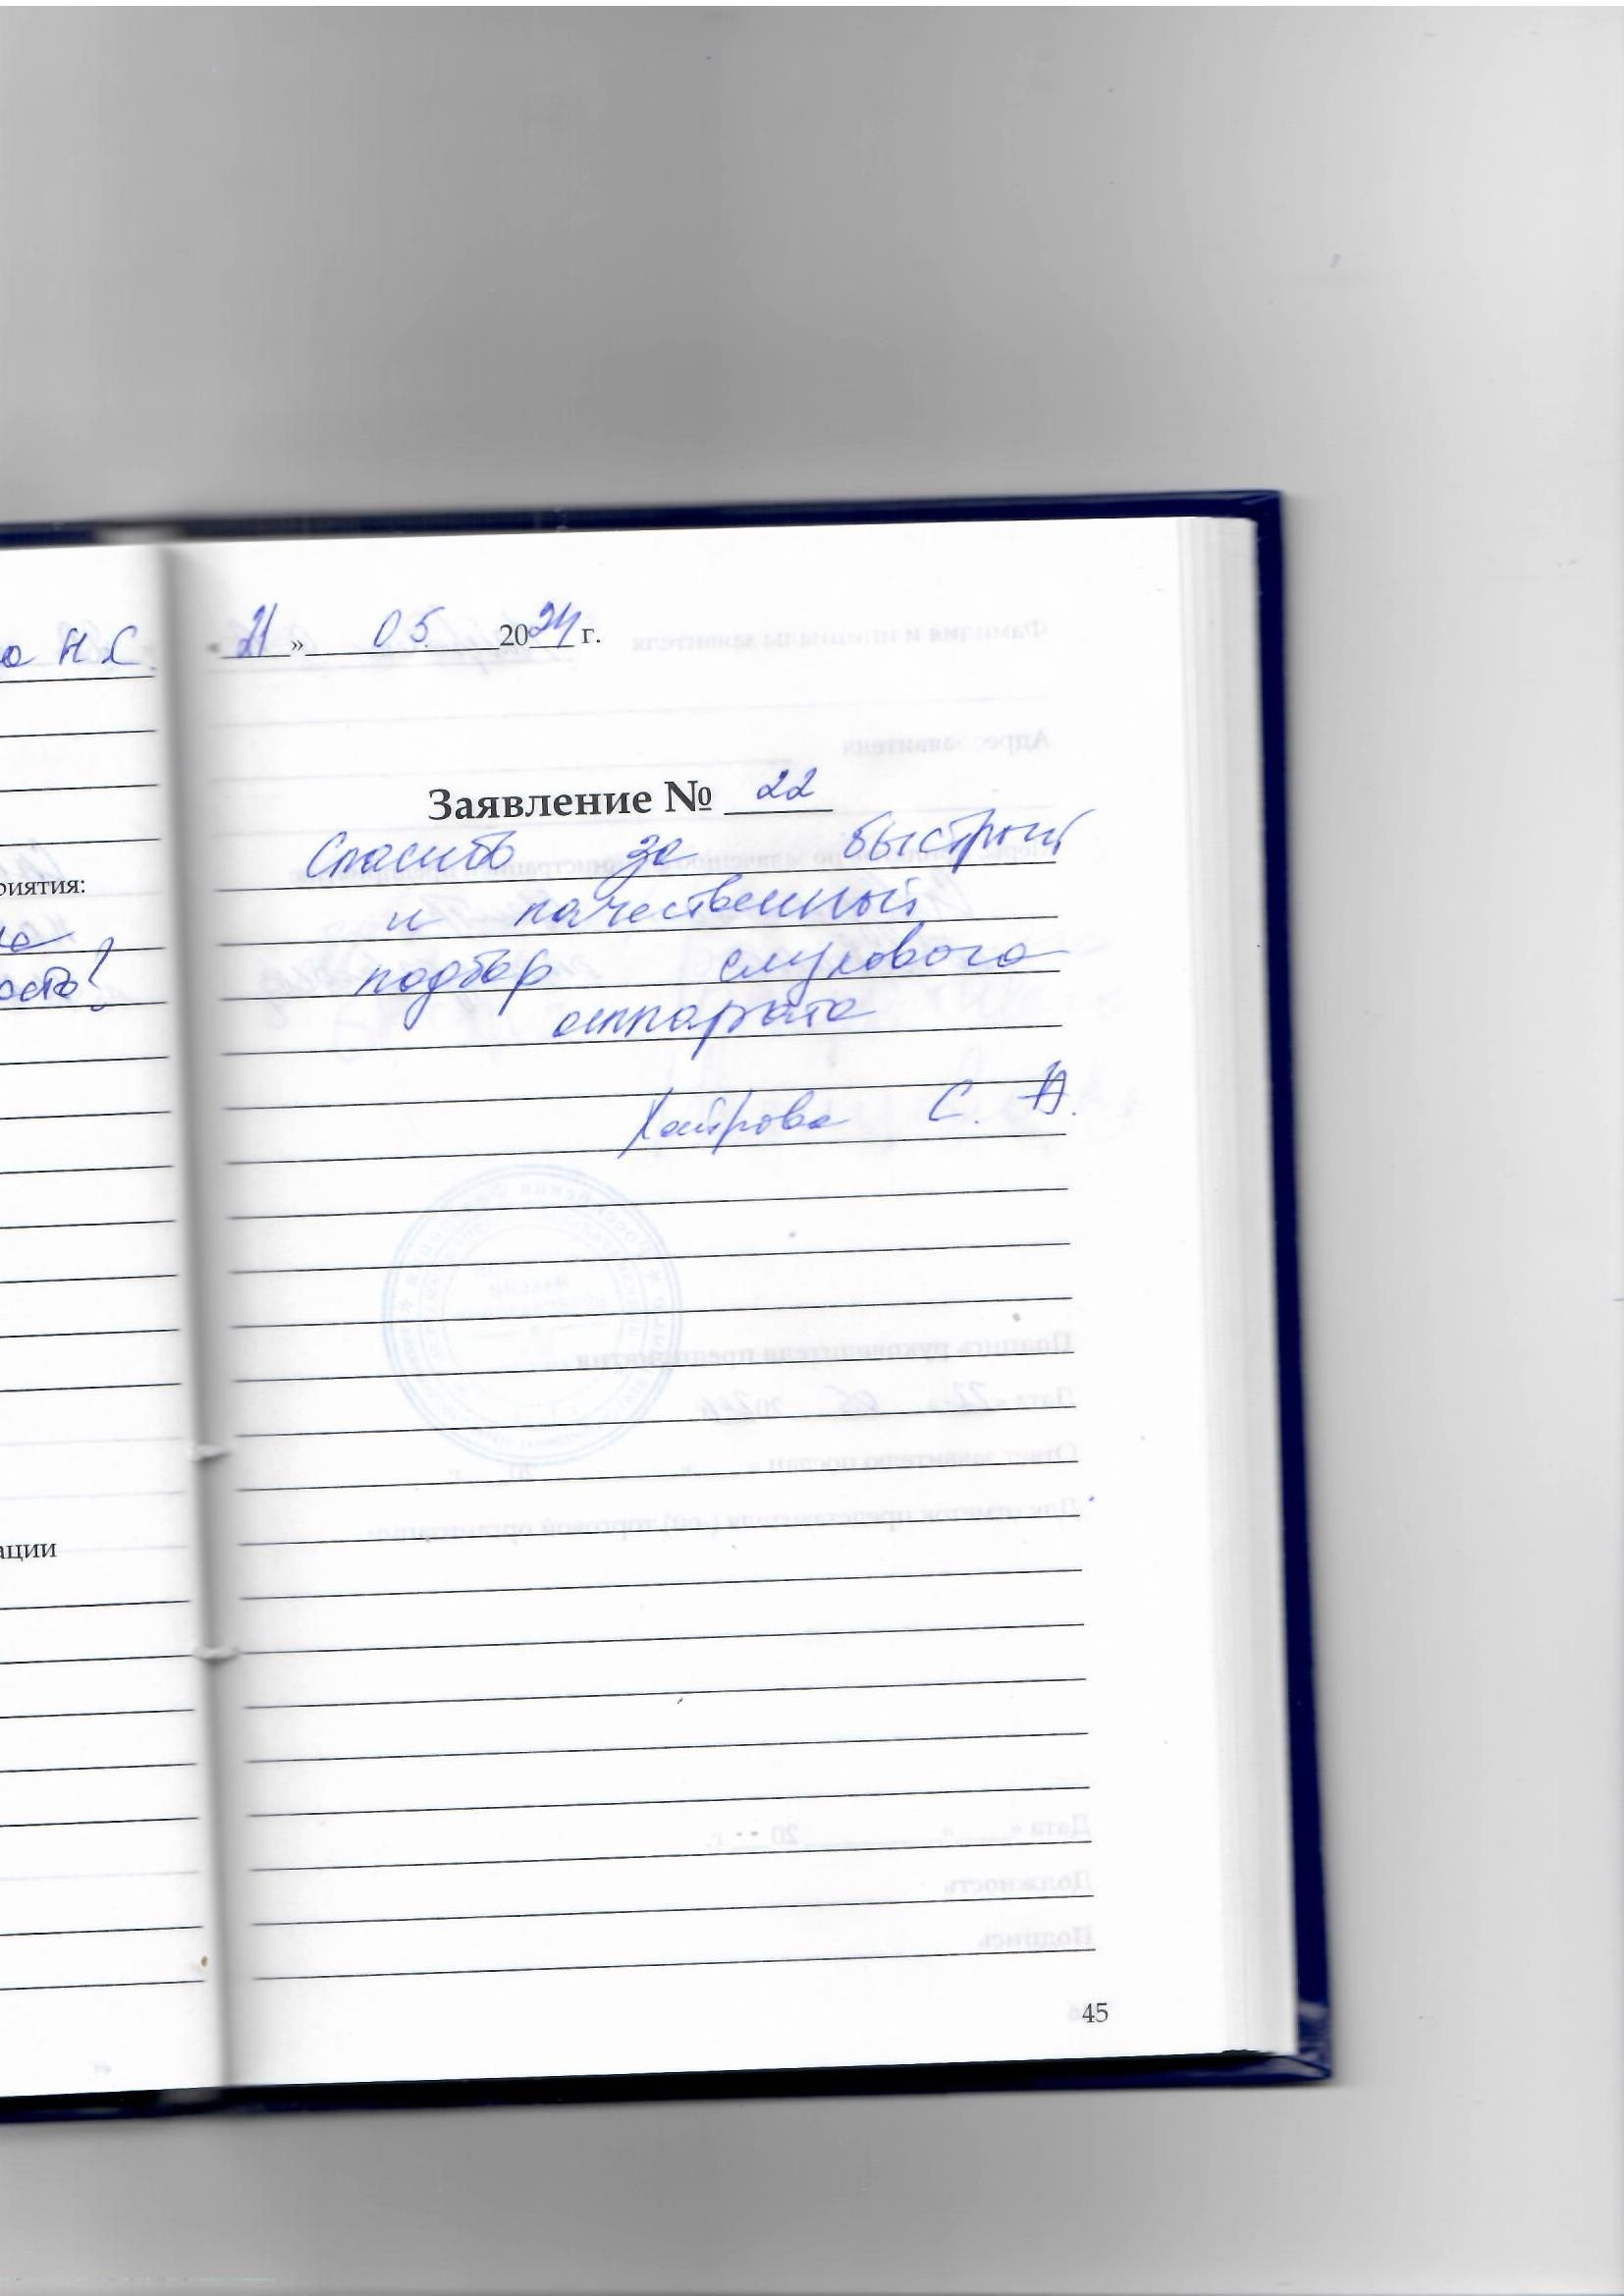 о Н.С.
риятия:
ации
« 21 » 05. 2024 г.
Заявление № 22
Спасибо за быстрый
и качественный
подбор слухового
аппарата
Хайрова С. А.
45